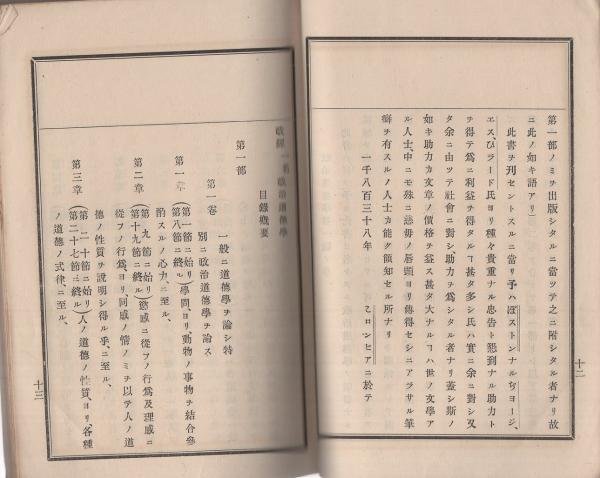 第一部ノミヲ出版シタルニ當ツテ之ニ附シタル者ナリ故
ニ此ノ如キ語アリ
此書ヲ刊セントスルニ當リ予ハぼストンナルぢヨージ、
エス、ひラード氏ヨリ種々貴重ナル忠告ト懇到ナル助力ト
ヲ得テ爲ニ利益ヲ得タルヿ甚タ多シ氏ハ實ニ余ニ對シ又
タ余ニ由ツテ社會ニ對シ助力ヲ爲シタル者ナリ蓋シ斯ノ
如キ助力カ文章ノ價格ヲ益ス甚タ大ナルヿハ世ノ文學ア
ル人士、中ニモ殊ニ慈母ノ唇頭ヨリ傳得セシニアラサル筆
ヲ有スルノ人士カ能ク領知セル所ナリ
一千八百三十八年
ころロンビアニ於テ
十二
政治道德學
目錄概要
第一部
第一卷
一般ニ道德學ヲ論シ特
別ニ政治道德學ヲ論ス
第一章
(第一節ニ始リ
第八節ニ終ル)學問、ヨリ、動物ノ事物ヲ結合參
酌スルノ心力、ニ至ル、
第二章
(第九節ニ始リ
第十九節ニ終ル)慾感ニ從フノ行爲及理感ニ
從フノ行爲、ヨリ、同感ノ情ノミヲ以テ人ノ道
德ノ性質ヲ説明シ得ル乎、ニ至ル、
第三章
(第二十節ニ始リ
第二十七節ニ終ル)人ノ道德ノ性質、ヨリ、各種
ノ道德ノ式律、ニ至ル、
十三